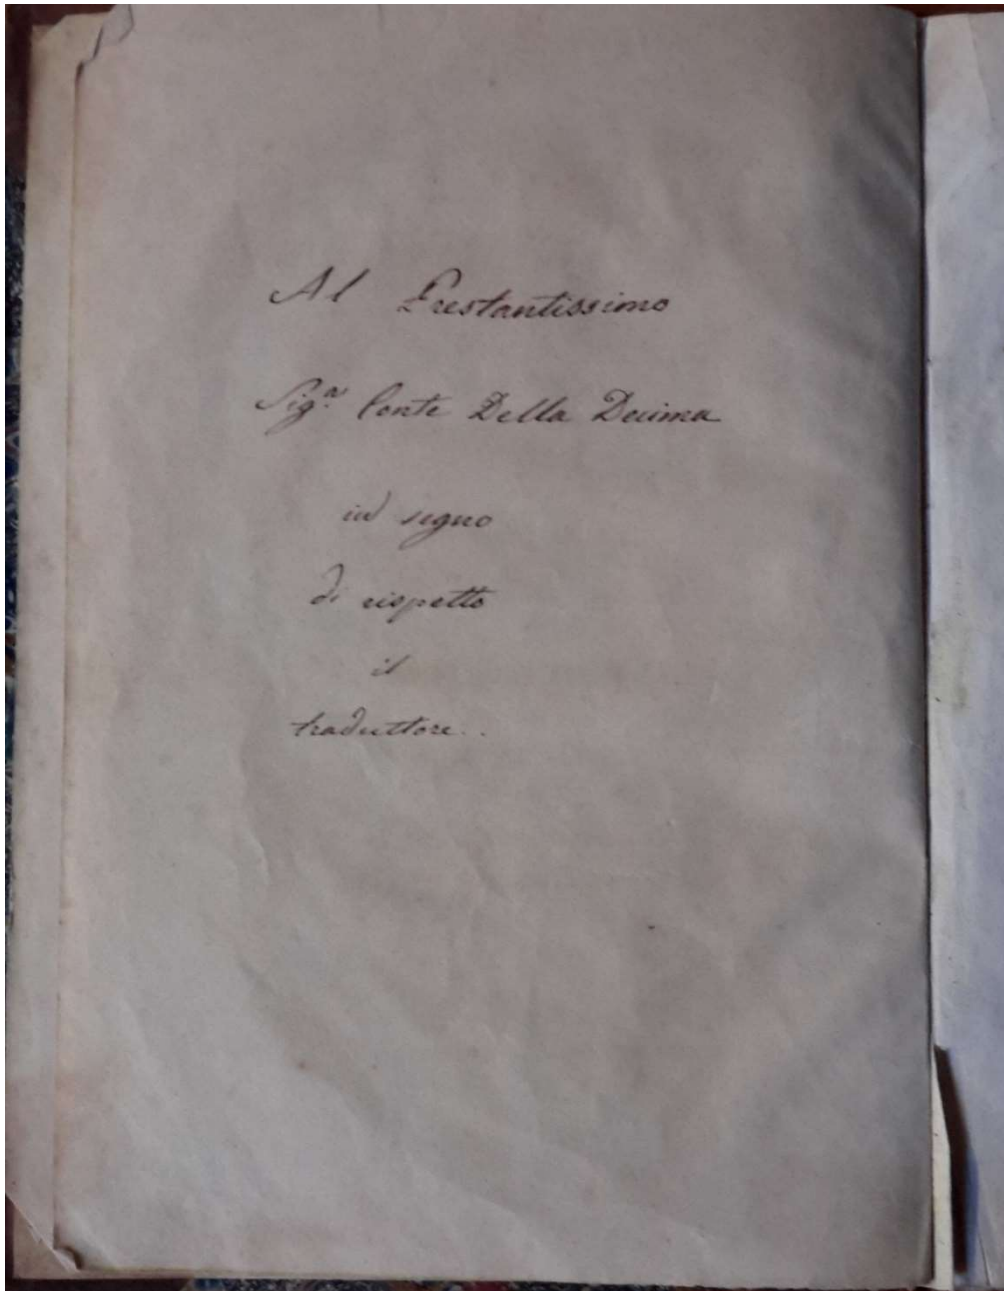 Al Prestantissimo
Sig.r Conte Della Decima
in segno
di rispetto
il
traduttore..